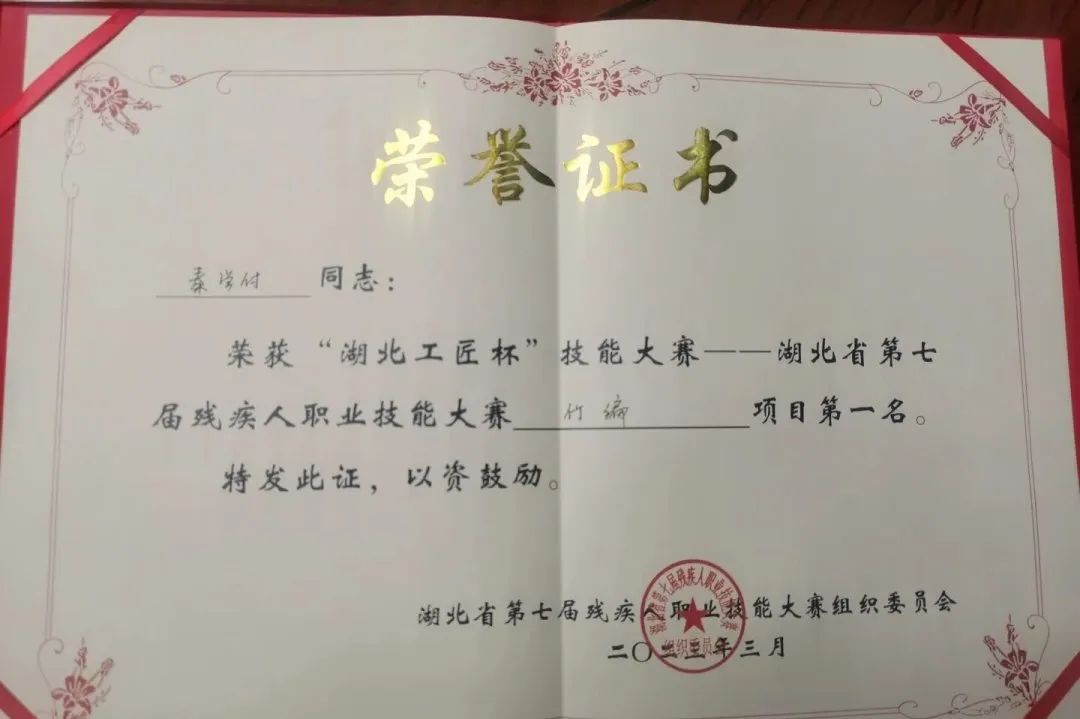 荣誉证书
秦学付 同志：
荣获“湖北工匠杯”技能大赛——湖北省第七
届残疾人职业技能大赛 竹编 项目第一名。
特发此证，以资鼓励。
湖北省第七届残疾人职业技能大赛组织委员会
二〇二三年三月
湖北省第七届残疾人职业技能大赛
组织委员会